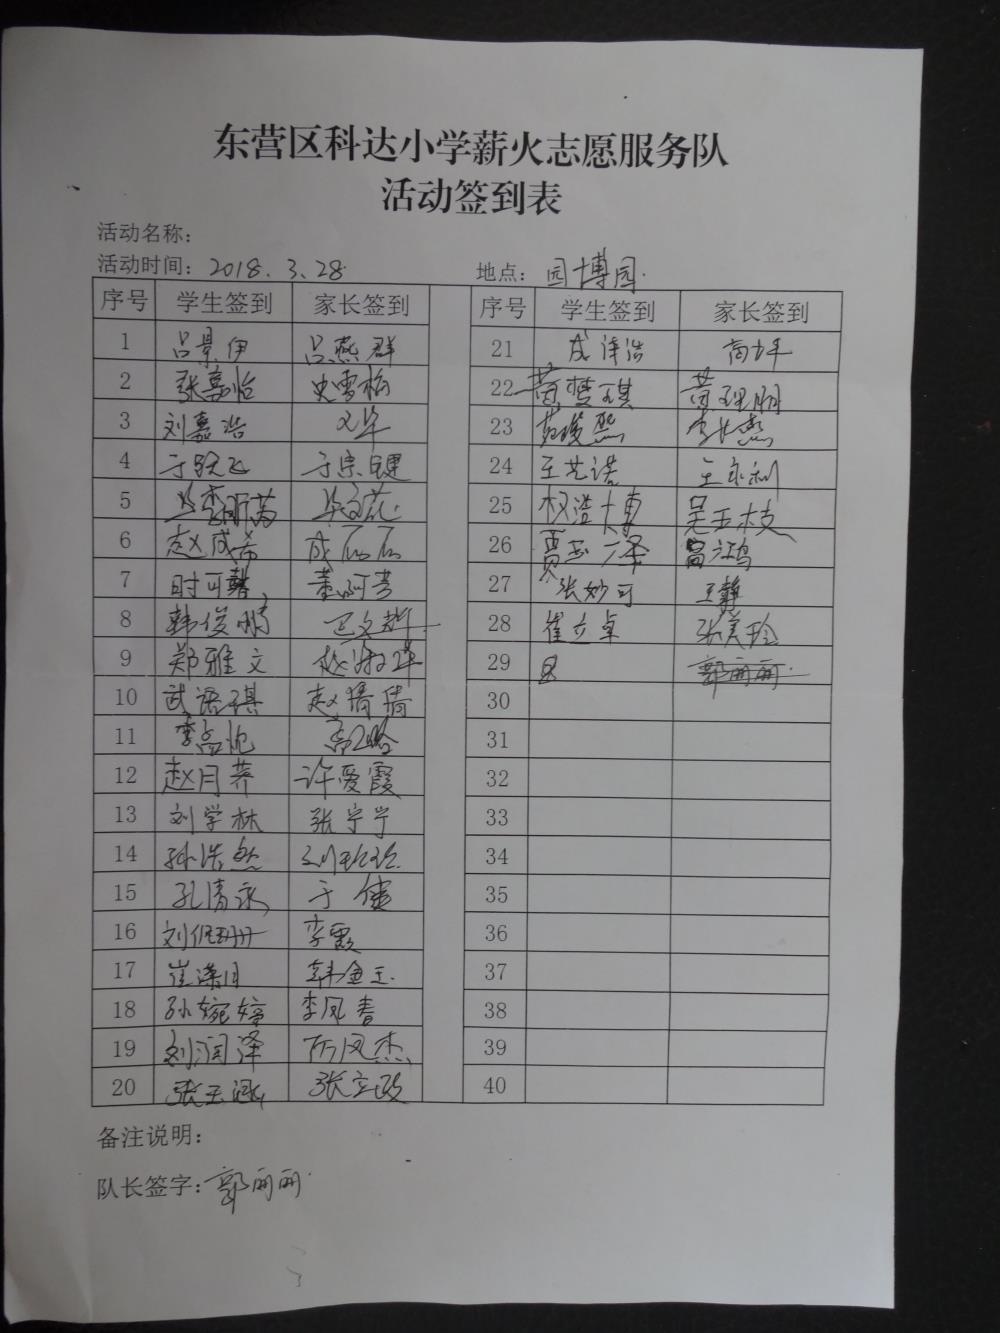 东营区科达小学薪火志愿服务队
活动签到表
活动名称：
活动时间：2018.3.28 地点：园博园
序号 学生签到 家长签到 序号 学生签到 家长签到
1 吕景伊 吕燕群 21 成泽浩
2 张嘉怡 史雪梅 22 黄梦琪 黄理明
3 刘嘉浩 23
4 于跃飞 于宗健 24 王艺诺 王永利
5 25 权浩博 吴玉枝
6 赵成希 成石石 26 贾玉泽
7 时可馨 董阿芳 27 张妙可 王静
8 韩俊鹏 巴文静 28 崔立卓 张美玲
9 郑雅文 赵淑萍 29 郭丽丽
10 武语琪 赵倩倩 30
11 31
12 赵月荞 许爱霞 32
13 刘学林 张宁宁 33
14 孙浩然 刘玲玲 34
15 孔清永 于健 35
16 刘佩珊 李霞 36
17 崔潆月 韩金玉 37
18 孙婉婷 李凤春 38
19 刘润泽 厉风杰 39
20 张玉涵 张立政 40
备注说明：
队长签字：郭丽丽